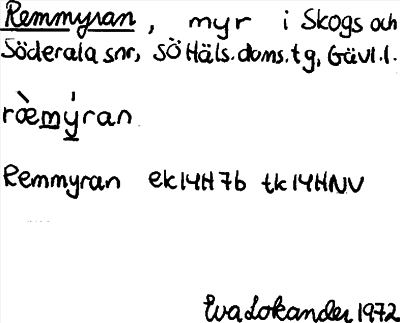 Remmyran, myr i Skogs och
Söderala snr, SÖ Häls. doms. tg, Gävl. l.
ròemýran
Remmyran ek 14H7b tk 14HNV
Eva Lokander 1972